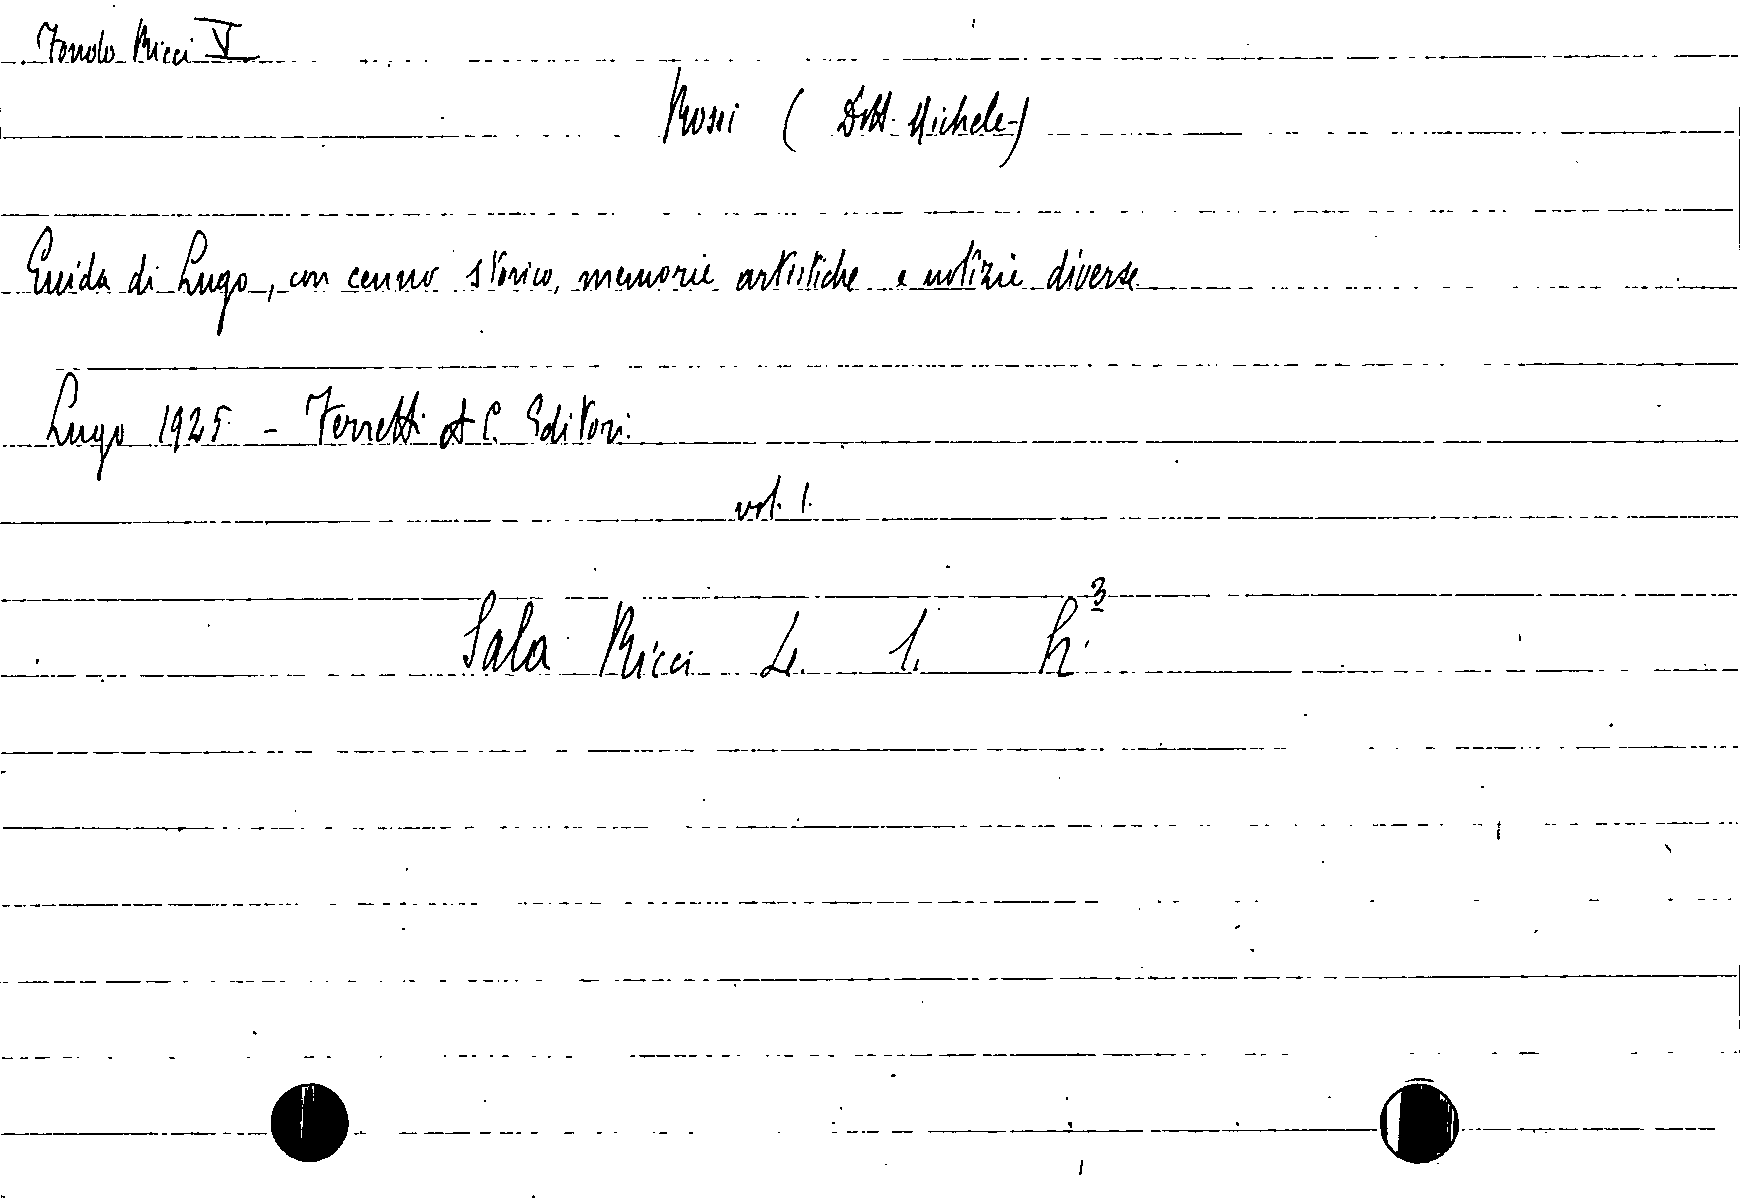 Fondo Ricci V
Rossi (Dott. Michele)
Guida di Lugo, con cenno storico, memorie artistiche e notizie diverse
Lugo 1925 - Ferretti et C. Editori.
vol. 1.
Sala Ricci L. 1. h.³